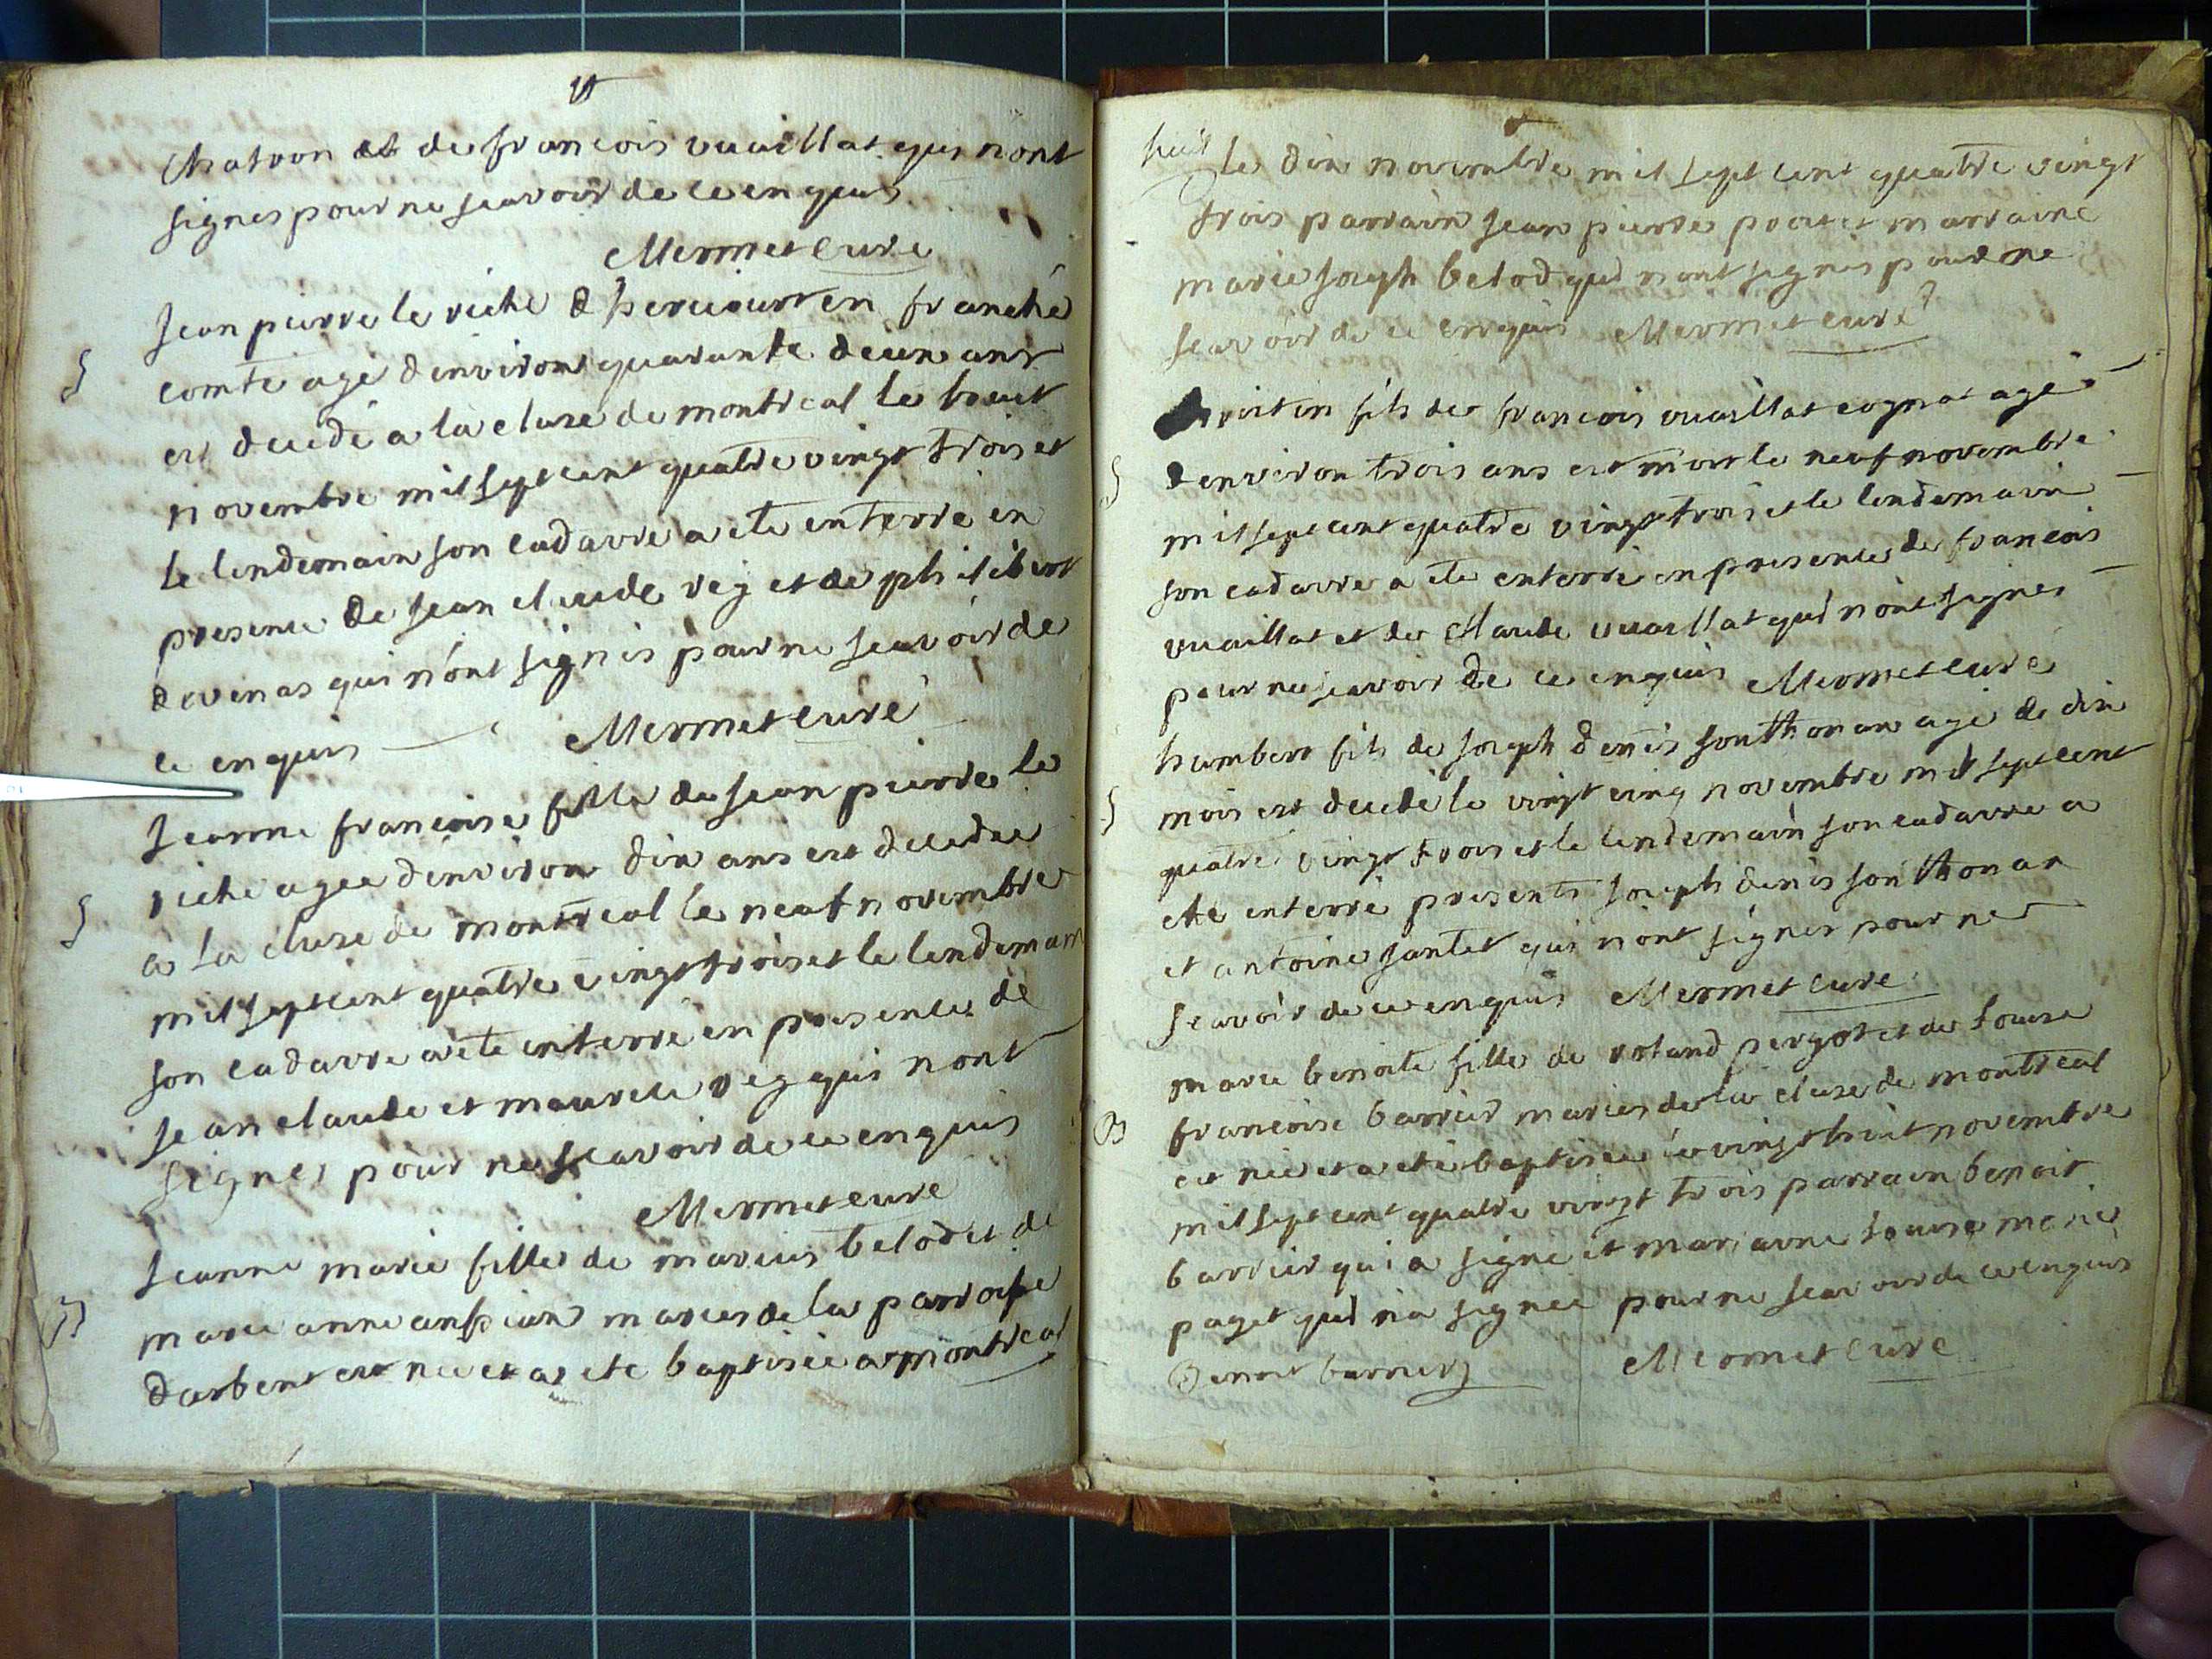 Chatron et de francois vuaillat qui n'ont
signes pour ne scavoir de ce enquis
Mermet curé
S
Jean pierre le riche d'hericourt en franche
comte agé d'environ quarante deux ans
est decedé a la cluse de montreal le huit
novembre mil sept cent quatre vingt trois et
le lendemain son cadavre a ete enterré en
presence de jean claude rey et de philibert
devenas qui n'ont signes pour ne scavoir de
ce enquis Mermet curé
S
Jeanne francoise fille de jean pierre le
riche agée d'environ dix ans est decedée
a la cluse de montreal le neuf novembre
mil sept cent quatre vingt trois et le lendemain
son cadavre a ete enterré en presence de
jean claude et maurice rey qui n'ont
signes pour ne scavoir de ce enquis
Mermet curé
B
Jeanne marie fille de marius belod et de
marie anne maries de la parroisse
darbent est née et a ete baptisée a montreal
le dix novembre mil sept cent quatre vingt
trois parrain jean pierre et marraine
marie joseph belod qui n'ont signes pour ne
scavoir de ce enquis Mermet curé
S
fils de francois vuaillat cognat agé
d'environ trois ans est mort le neuf novembre
mil sept cent quatre vingt trois et le lendemain
son cadavre a ete enterré en presence de francois
vuaillat et de claude vuaillat qui n'ont signes
pour ne scavoir de ce enquis Mermet curé
S
humbert fils de joseph denis sonthonax agé de dix
mois est decedé le vingt cinq novembre mil sept cent
quatre vingt trois et le lendemain son cadavre a
ete enterré presents joseph denis sonthonax
et antoine jantet qui n'ont signes pour ne
scavoir de ce enquis Mermet curé
B
marie benoite fille de roland pergot et de louise
francoise barrier maries de la cluse de montreal
est née et a eté baptisée le vingt huit novembre
mil sept cent quatre vingt trois parrain benoit
barrier qui a signé et marraine louise marie
paget qui n'a signée pour ne scavoir de ce enquis
Benoit barrier Mermet curé